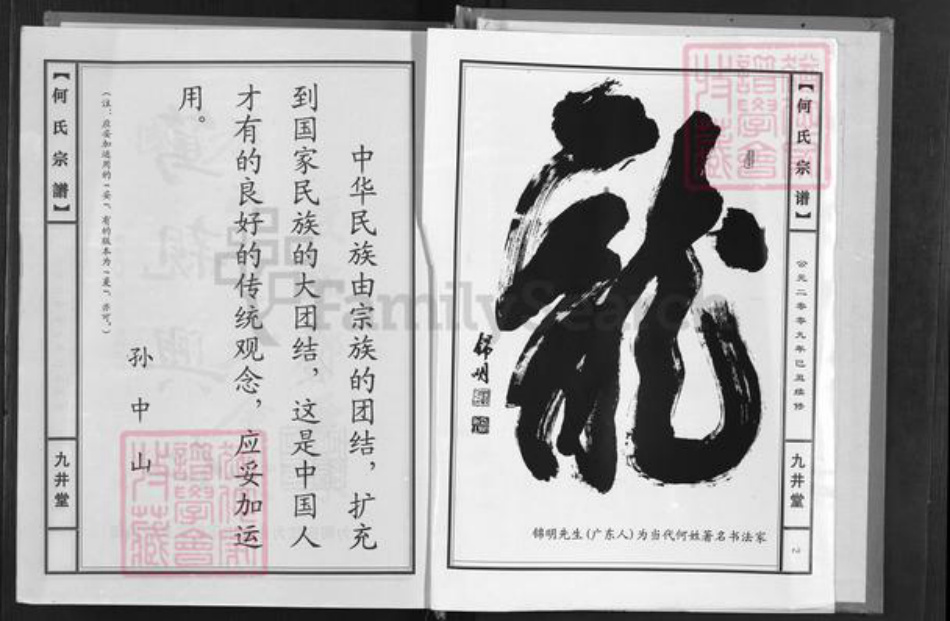 【何氏宗谱】
公元二零零九年己丑续修
九井堂
2
龙
锦明
锦明先生(广东人)为当代何姓著名书法家
中华民族由宗族的团结，扩充
到国家民族的大团结，这是中国人
才有的良好的传统观念，应妥加运
用。
孙中山
(注：应妥加运用的“妥”，有的版本为“爰”，亦可。)
【何氏宗谱】
九井堂
FamilySearch